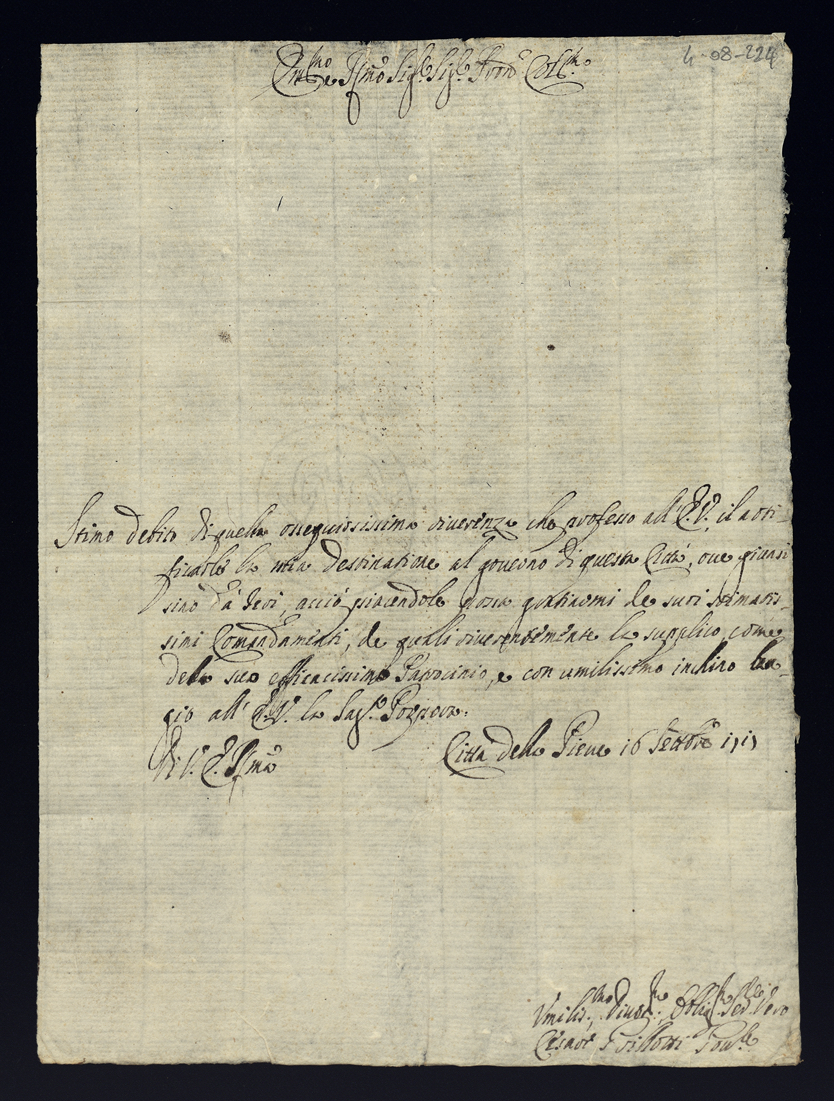 4-08-224
Em.mo e R.mo Sig.r Sig.r Pron. Col.mo
Stimo debito di quella ossequiosissima riverenza che professo all' E.V. il noti-
ficarle la mia destinatione al governo di questa Città, ove giunsi
sino da hevi, acciò piacendole possa continuarmi de suoi stimatis-
sini Comandamenti, de quali riverentemente la supplico, come
della suo efficacissimo Patrocinio, e con umilissimo inchino ba-
gio all' E.V. la Sag.a Porpora.
Di V. E. R.ma
Città della Pieve 16 Settbre
Umilis.mo, Divot.mo, Oblig.mo Ser. Vero
Cesare